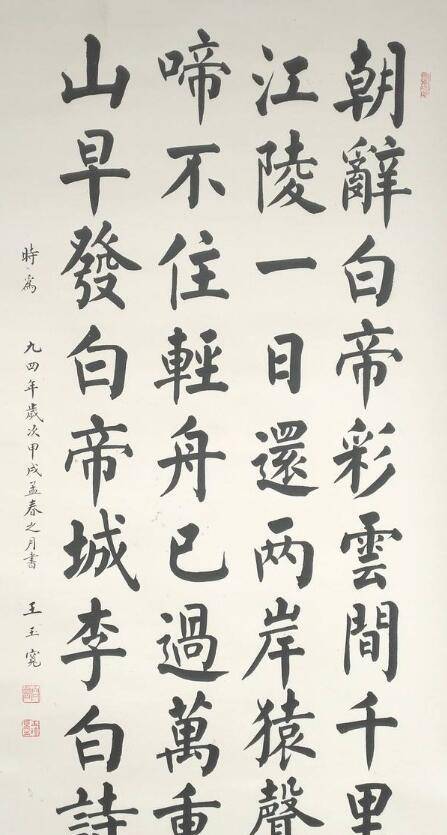 朝辭白帝彩雲間千里
江陵一日還两岸猿聲
啼不住輕舟已過萬重
山早發白帝城李白詩
時為
九四年歲次甲戌孟春之月書 王玉寬